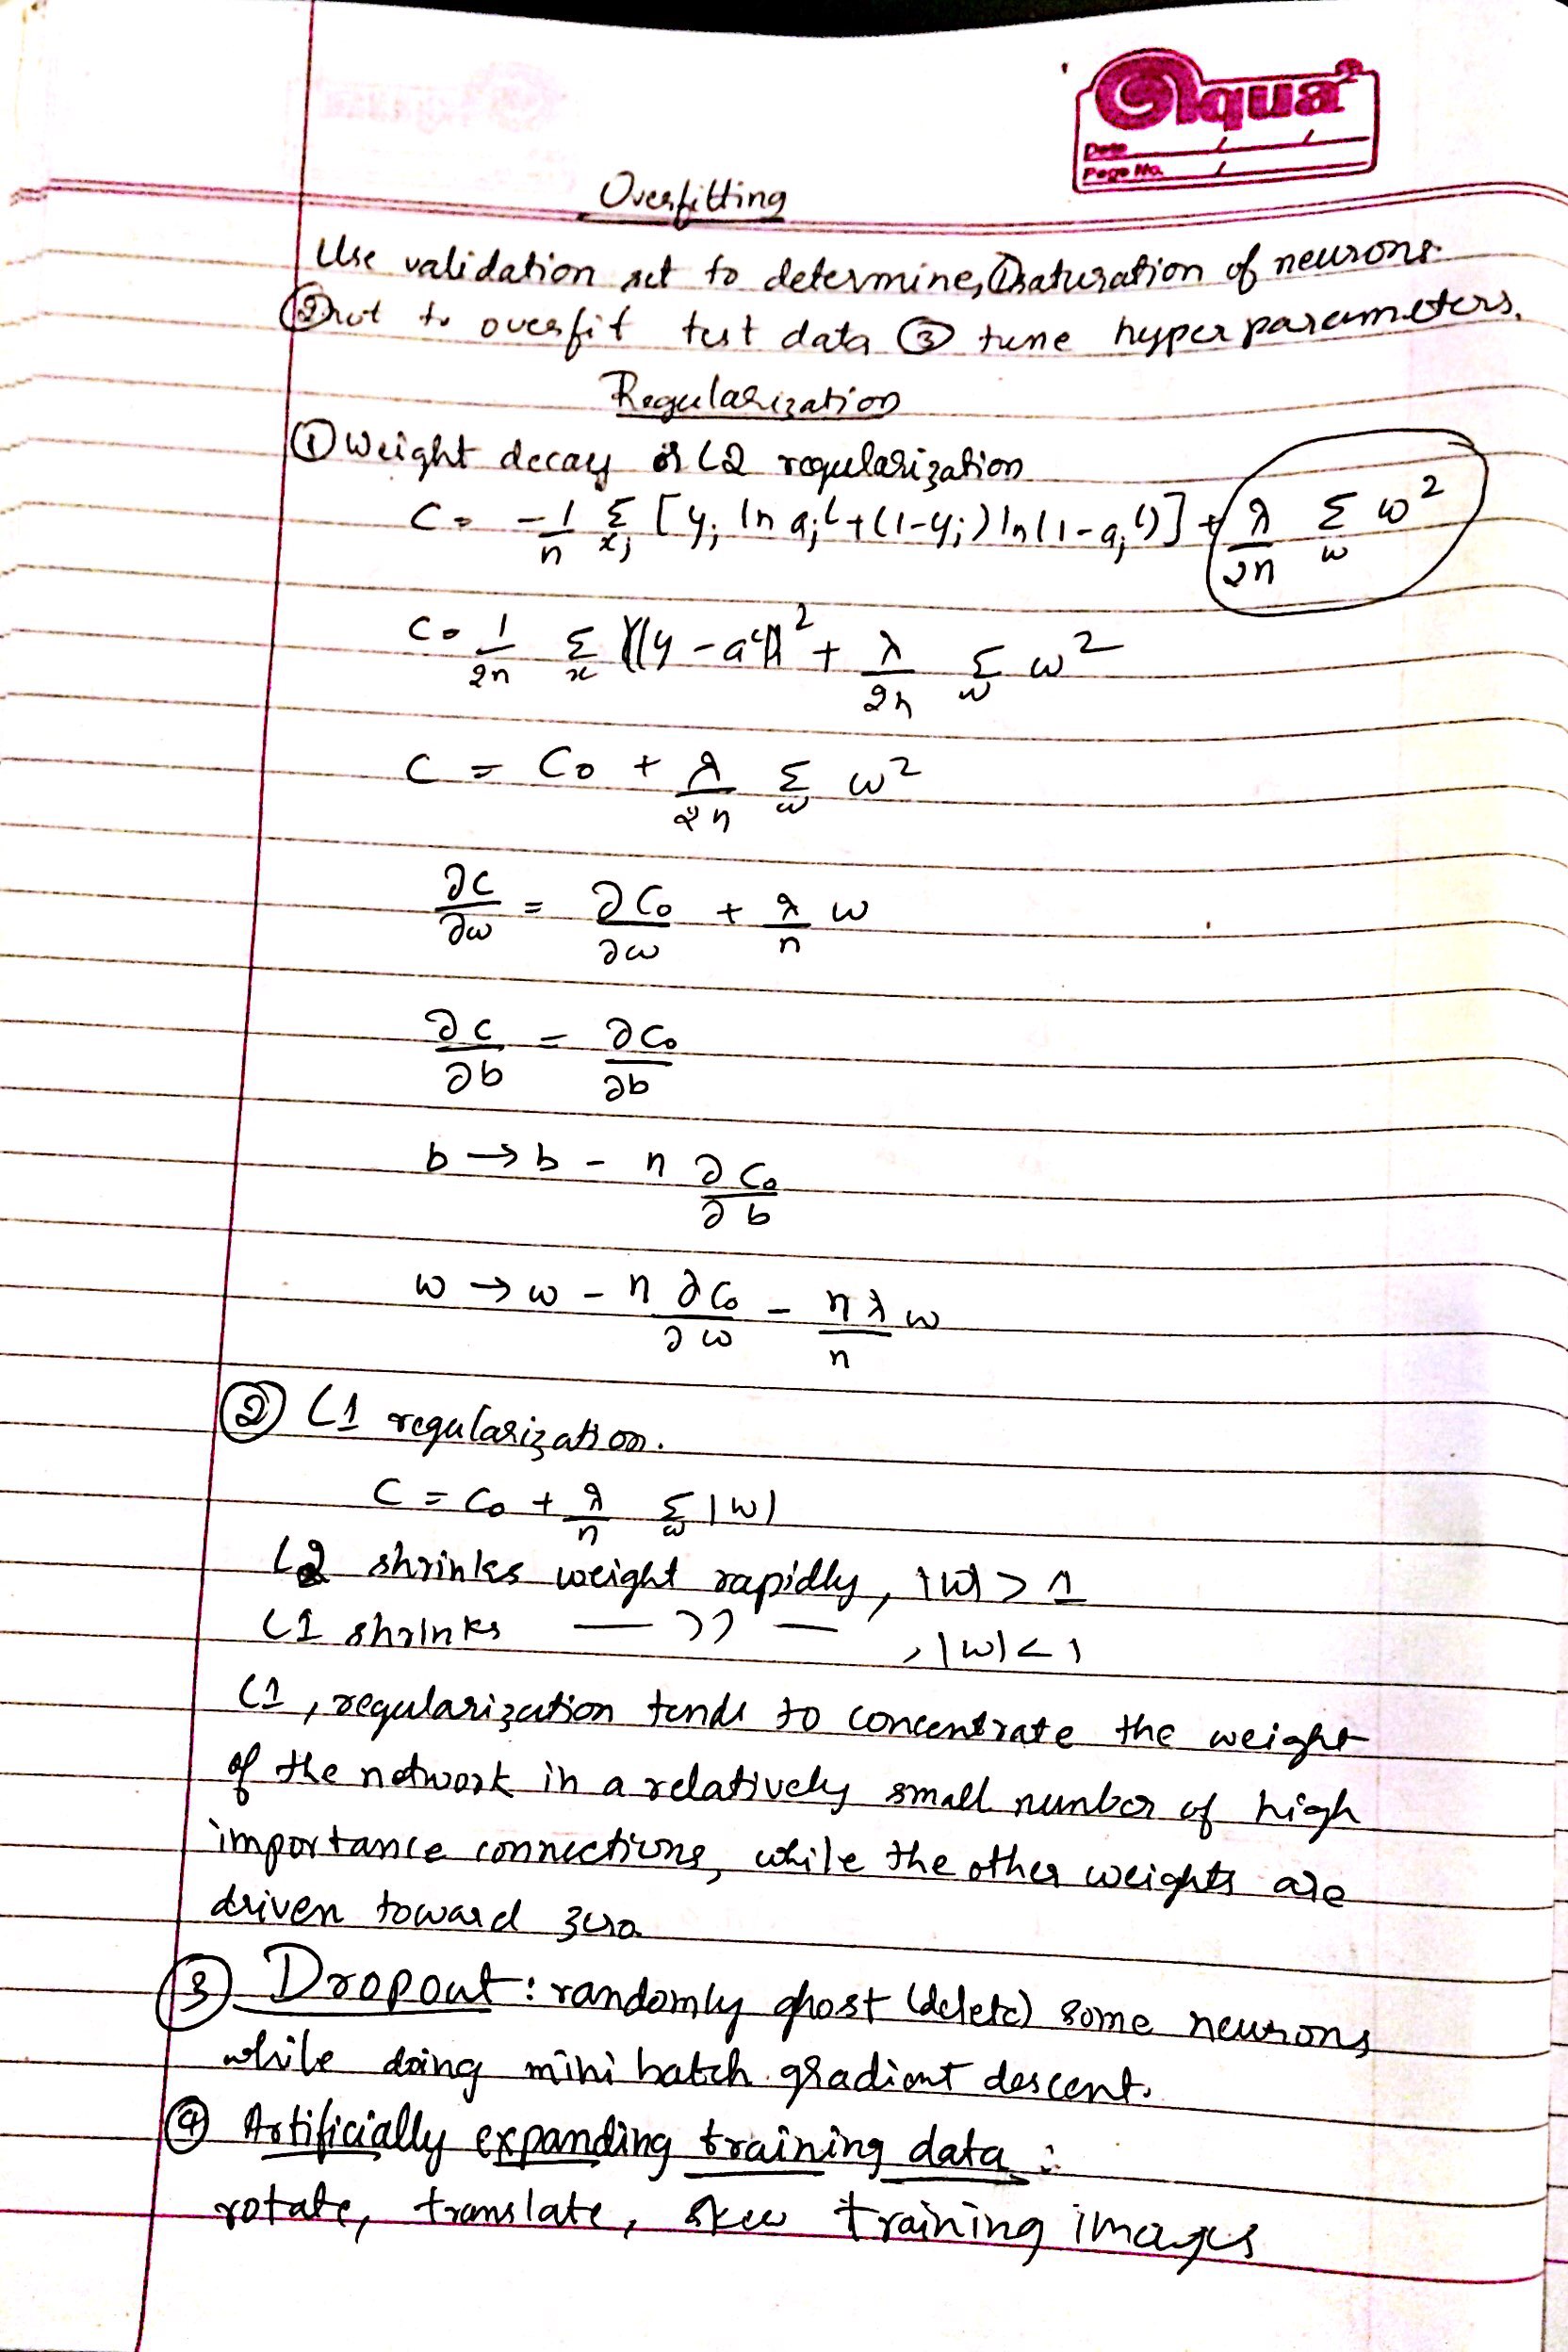 Aqua
Date / /
Page No. /
Overfitting
Use validation set to determine, ① saturation of neurons
② not to overfit test data ③ tune hyper parameters.
Regularization
① Weight decay or L2 regularization
C = -1/n Σ_xj [y_j ln a_j^L + (1-y_j) ln(1-a_j^L)] + λ/2n Σ_w w²
C = 1/2n Σ_x ||y - a^L||² + λ/2n Σ_w w²
C = C₀ + λ/2n Σ_w w²
∂C/∂w = ∂C₀/∂w + λ/n w
∂C/∂b = ∂C₀/∂b
b → b - η ∂C₀/∂b
w → w - η ∂C₀/∂w - ηλ/n w
② L1 regularization.
C = C₀ + λ/n Σ_w |w|
L2 shrinks weight rapidly, |w| > 1
L1 shrinks — ,, — , |w| < 1
L1, regularization tends to concentrate the weight
of the network in a relatively small number of high
importance connections, while the other weights are
driven toward zero
③ Dropout : randomly ghost (delete) some neurons
while doing mini batch gradient descent.
④ Artificially expanding training data :
rotate, translate, skew training images